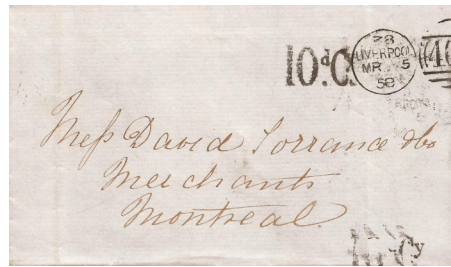 10d.C
78
LIVERPOOL
MR 5
58
466
Mess David Torrance & Co
Merchants
Montreal
Cy